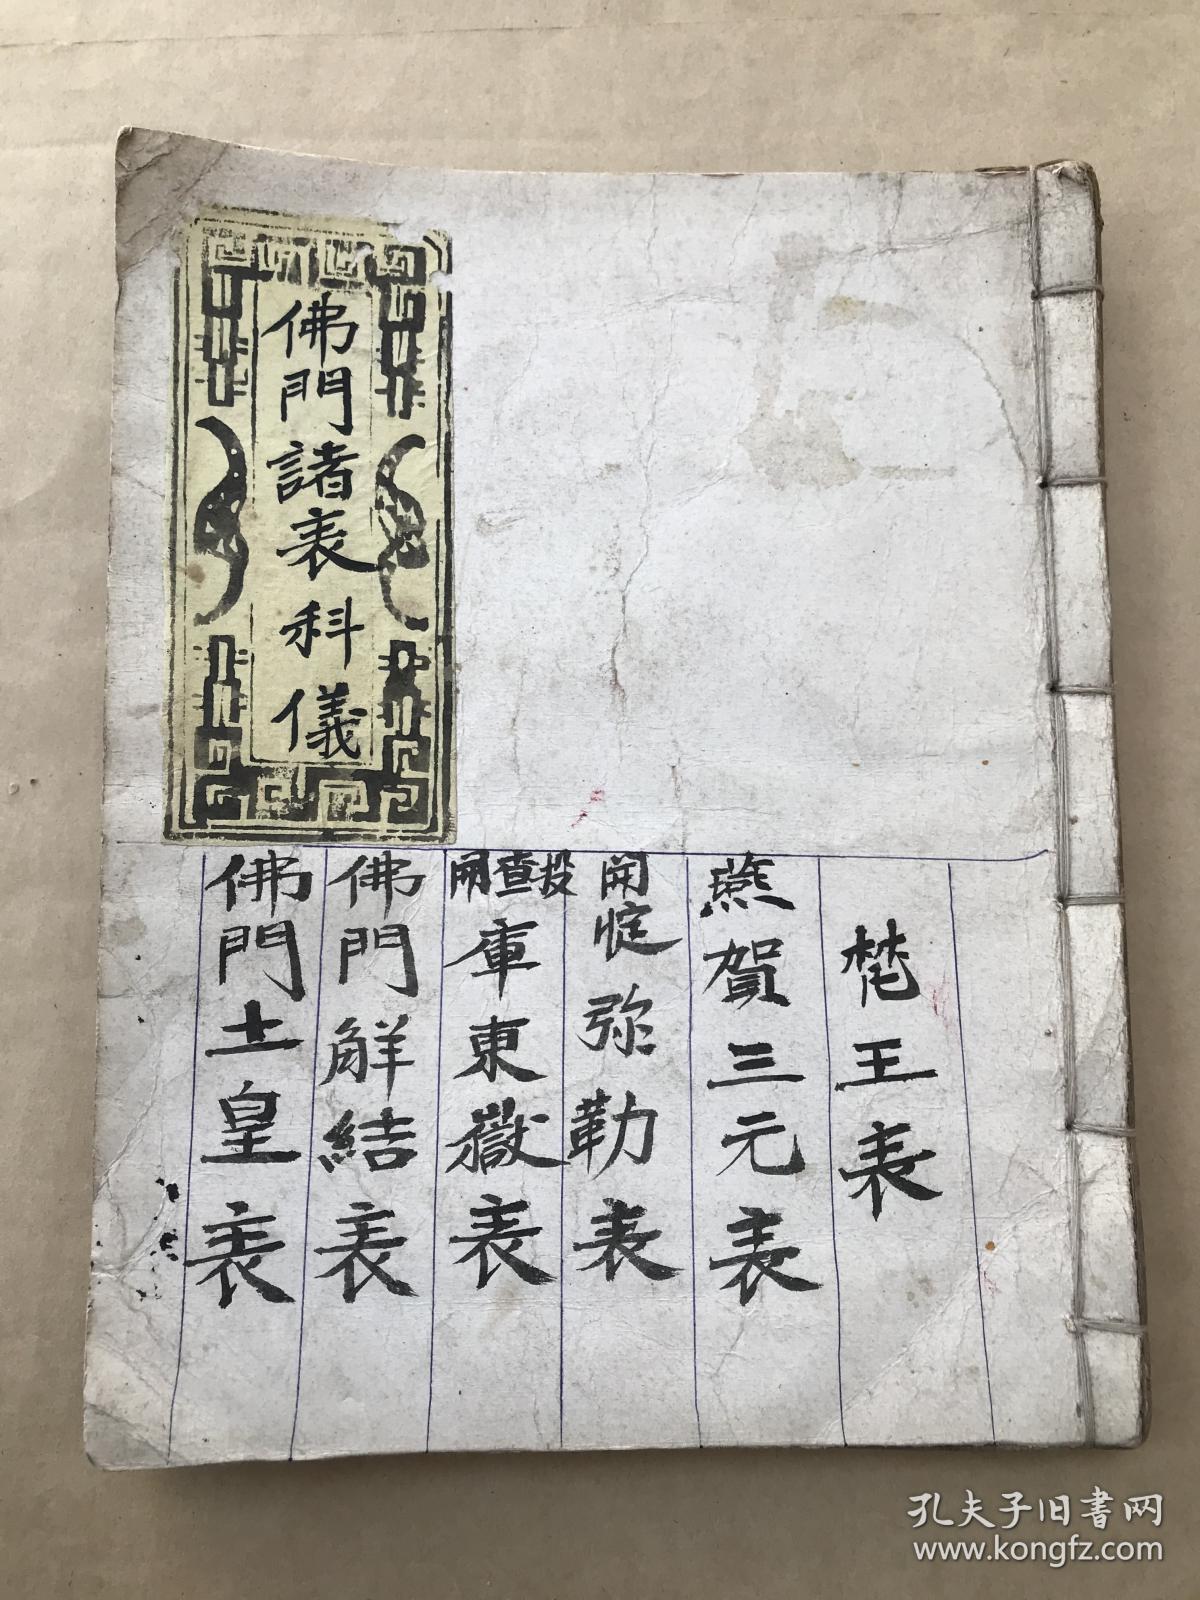 佛門諸表科儀
梵王表
燕賀三元表
開 弥勒表
投查開庫東嶽表
佛門解結表
佛門土皇表
孔夫子旧书网
www.kongfz.com